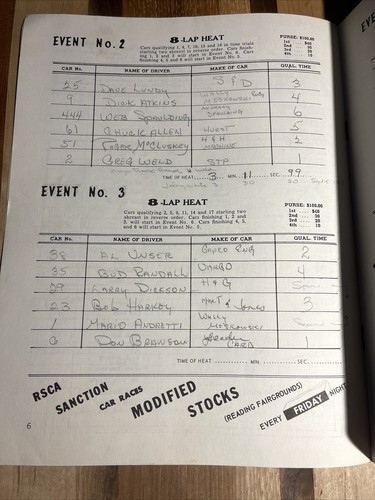 EVENT No. 2
8-LAP HEAT
Cars qualifying 1, 4, 7, 10, 13 and 16 in time trials
starting two abreast in reverse order. Cars finish-
ing 1, 2 and 3 will start in Event No. 6. Cars
finishing 4, 5 and 6 will start in Event No. 5.
PURSE: $100.00
1st $40
2nd 30
3rd 20
4th 10
CAR No. NAME OF DRIVER MAKE OF CAR QUAL TIME
25 DAVE LUNDY S & D 3
9 DICK ATKINS WALLY MESKOWSKI 4
444 WEB SPAULDING SPAULDING 6
61 CHUCK ALLEN HURST 5
51 ROGER McCLUSKEY H & H MACHINE 2
2 GREG WELD STP 1
TIME OF HEAT 3 MIN. 11 SEC. 99
EVENT No. 3
8-LAP HEAT
Cars qualifying 2, 5, 8, 11, 14 and 17 starting two
abreast in reverse order. Cars finishing 1, 2 and
3, will start in Event No. 6. Cars finishing 4, 5,
and 6 will start in Event No. 5.
PURSE: $100.00
1st $40
2nd 30
3rd 20
4th 10
CAR No. NAME OF DRIVER MAKE OF CAR QUAL TIME
38 AL UNSER 2
35 BUD RANDALL 4
29 LARRY DICKSON H & G
23 BOB HARKEY HART & JONES 3
1 MARIO ANDRETTI WALLY MESKOWSKI
6 DON BRANSON LEADER CARD 1
TIME OF HEAT MIN. SEC.
RSCA SANCTION CAR RACES MODIFIED STOCKS (READING FAIRGROUNDS) EVERY FRIDAY NIGHT
6